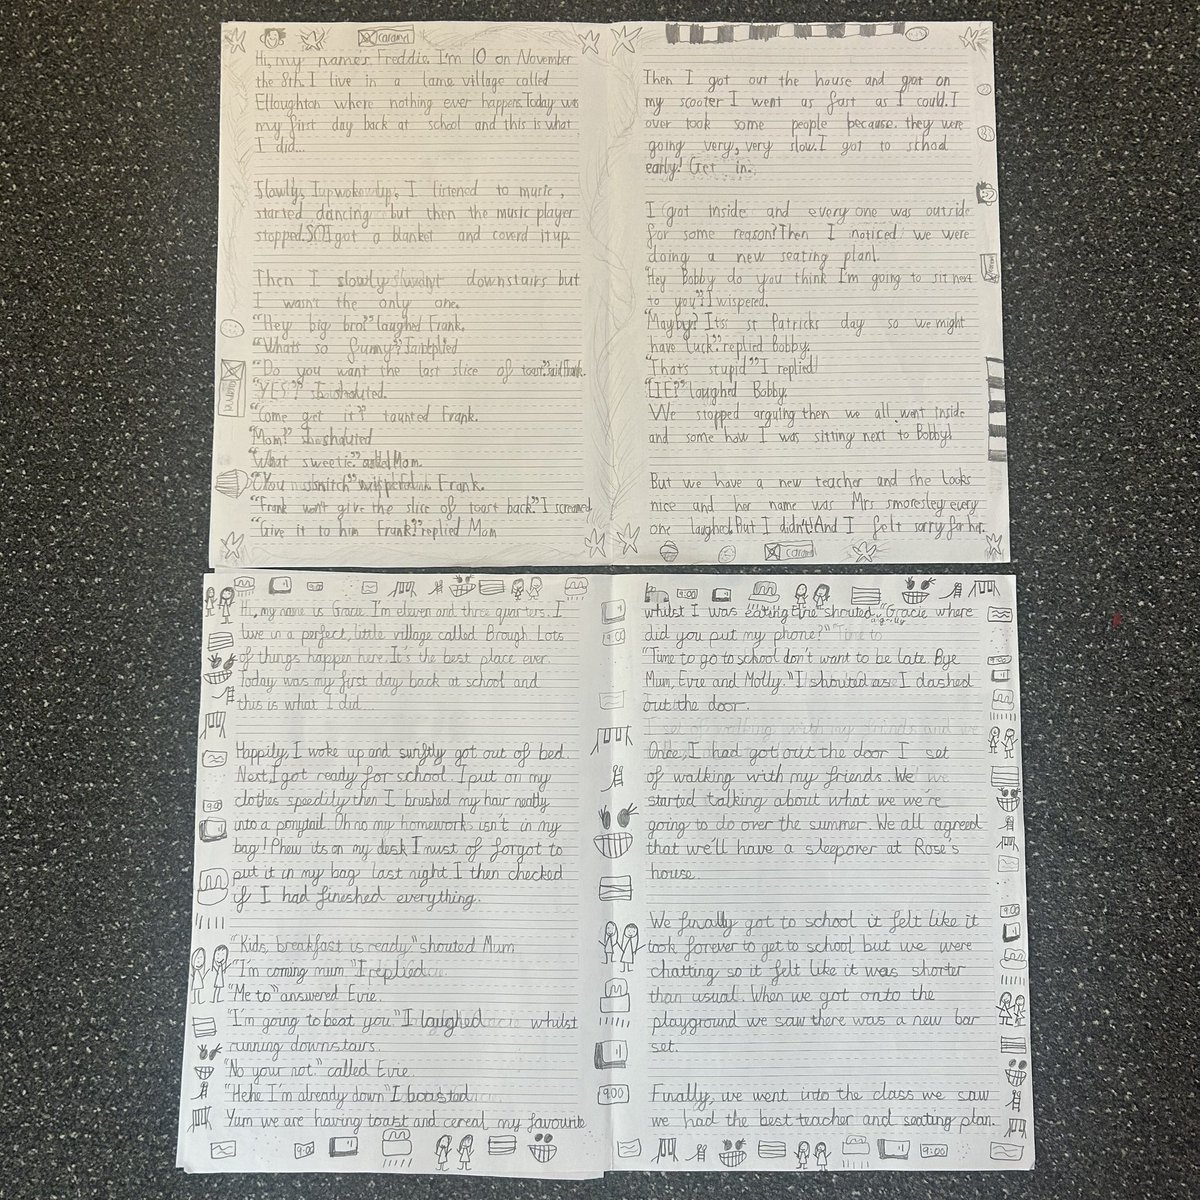 caramel
Hi, my name's Freddie. I'm 10 on November
the 8th. I live in a lame village called
Elloughton where nothing ever happens. Today was
my first day back at school and this is what
I did...
Slowly, I woke up. I listened to music,
started dancing but then the music player
stopped. SO I got a blanket and coverd it up.
Then I slowly downstairs but
I wasn't the only one.
"Hey big bro!" laughed Frank.
"Whats so funny?" I replied
"Do you want the last slice of toast." said Frank.
"YES!" I shouted.
"Come get it?" taunted Frank.
"Mom!" I shouted
"What sweetie." asked Mom.
"You snitch" Frank.
"Frank won't give the slice of toast back." I screamed
"Give it to him Frank!" replied Mom
Then I got out the house and got on
my scooter I went as fast as I could. I
over took some people because they were
going very, very slow. I got to school
early! Get in.
I got inside and every one was outside
for some reason? Then I noticed we were
doing a new seating plan!.
"Hey Bobby do you think I'm going to sit next
to you"? I wispered.
"Mayby? Its st Patricks day so we might
have luck." replied Bobby.
"That's stupid" I replied!
"LIE?" laughed Bobby.
We stopped arguing then we all went inside
and some how I was sitting next to Bobby!
But we have a new teacher and she looks
nice and her name was Mrs smoresley every
one laughed. But I didn't! And I felt sorry for her.
caramel
Hi, my name is Gracie I'm eleven and three quarters. I
live in a perfect, little village called Brough Lots
of things happen here. It's the best place ever.
Today was my first day back at school and
this is what I did...
Happily, I woke up and swiftly got out of bed.
Next, I got ready for school. I put on my
clothes speedily then I brushed my hair neatly
into a ponytail. Oh no my homework isn't in my
bag! Phew its on my desk I must of forgot to
put it in my bag last night. I then checked
if I had fineshed everything.
"Kids, breakfast is ready" shouted Mum
"I'm coming mum" I replied
"Me to" answered Evie.
"I'm going to beat you" I laughed whilst
running downstairs.
"No your not." called Evie.
"Hehe I'm already down" I boasted
Yum we are having toast and cereal my favourite
whilst I was eating Evie shouted angrily, "Gracie where
did you put my phone?" Time to
"Time to go to school don't want to be late Bye
Mum, Evie and Molly." I shouted as I dashed
out the door.
I set of walking with my friends and we
Once, I had got out the door I set
of walking with my friends. We we
started talking about what we we're
going to do over the summer. We all agreed
that we'll have a sleepover at Rose's
house.
We finally got to school it felt like it
took forever to get to school but we were
chatting so it felt like it was shorter
than usual. When we got onto the
playground we saw there was a new bar
set.
Finally, we went into the class we saw
we had the best teacher and seating plan.
9:00